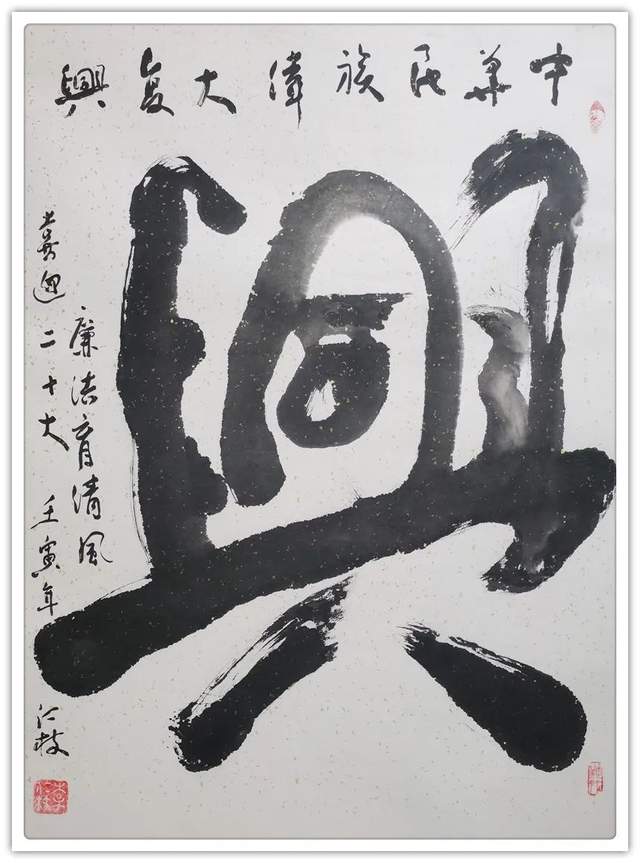 中華民族偉大复興
興
廉洁育清風
喜迎二十大 壬寅年 仁枝